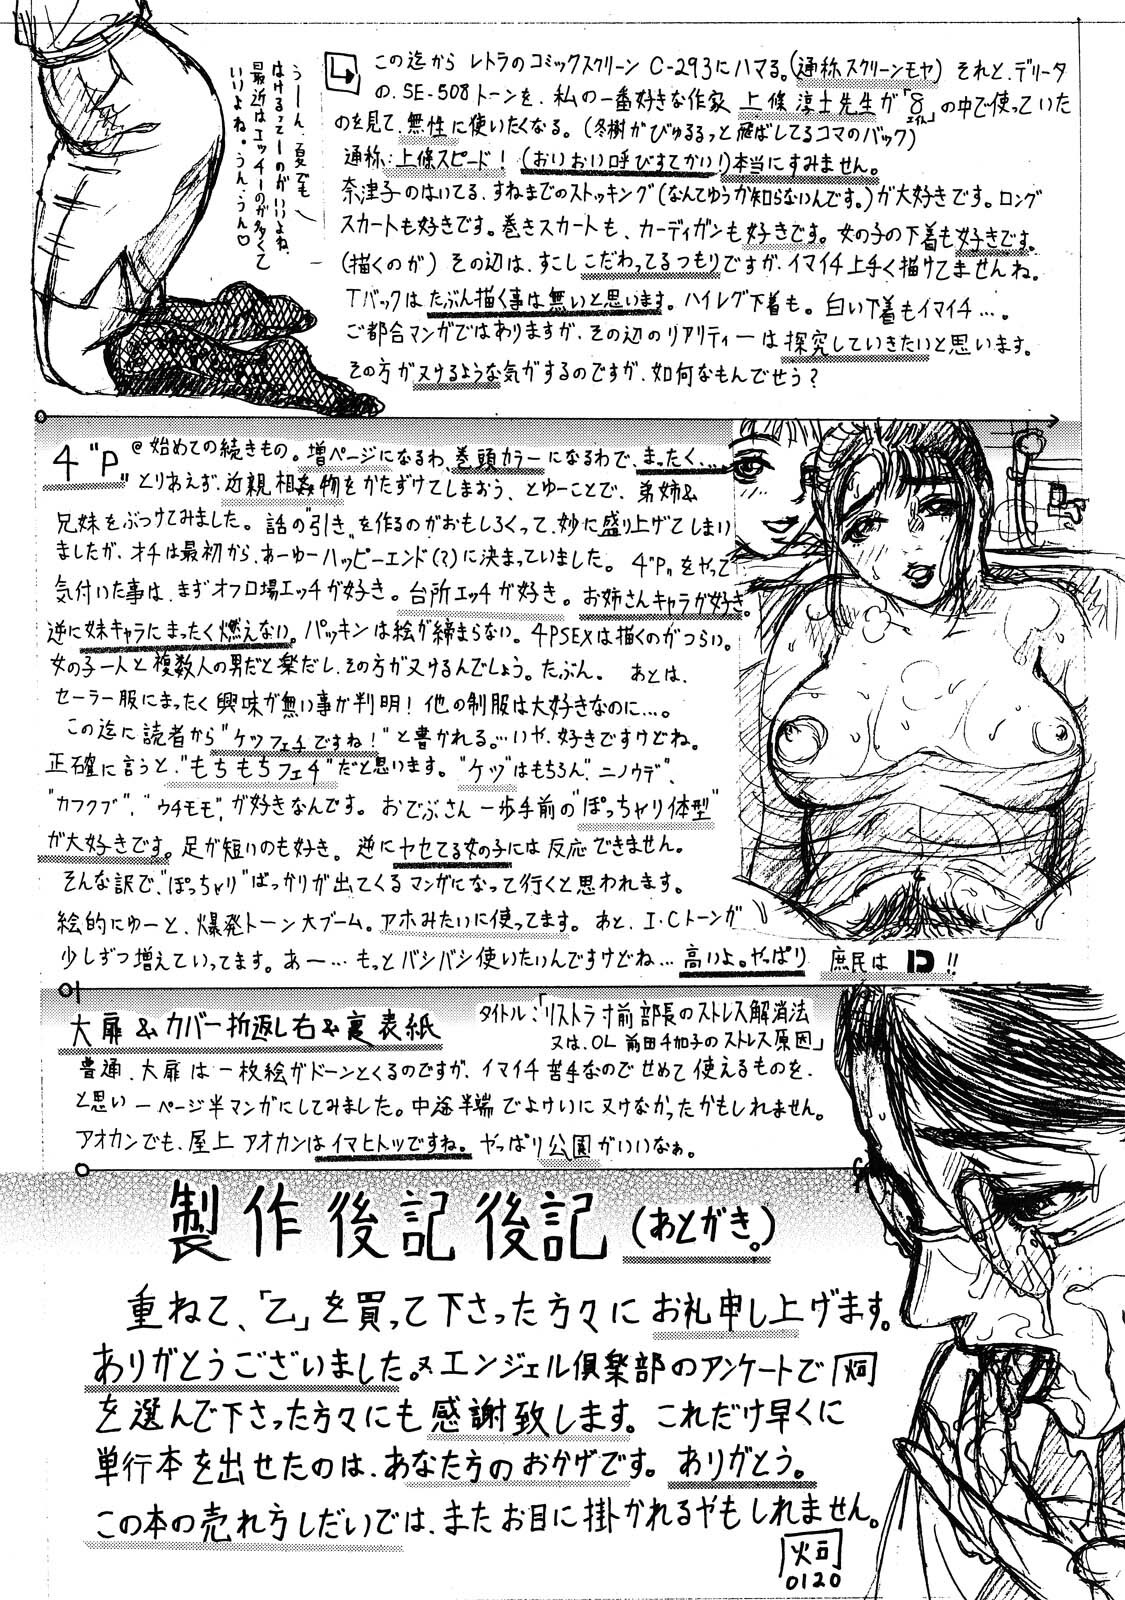 うーん、夏でも
はけるってーのがいいよね、
最近はエッチーのが多くて
いいよね。うん、うん♡
この迄から レトラのコミックスクリーン C-293にハマる。(通称スクリーンモヤ) それと、デリータ
の、SE-508トーンを、私の一番好きな作家 上條淳士先生が「8(エイト)」の中で使っていた
のを見て、無性に使いたくなる。(冬樹がびゅるるっと飛ばしてるコマのバック)
通称:上條スピード! (おいおい呼びすてかい!)本当にすみません。
奈津子のはいてる、すねまでのストッキング(なんてゆうか知らないんです。)が大好きです。ロング
スカートも好きです。巻きスカートも、カーディガンも好きです。女の子の下着も好きです。
(描くのが) その辺は、すこしこだわってるつもりですが、イマイチ上手く描けてませんね。
Tバックはたぶん描く事は無いと思います。ハイレグ下着も。白い下着もイマイチ…。
ご都合マンガではありますが、その辺のリアリティーは探究していきたいと思います。
その方がヌけるような気がするのですが、如何なもんでせう?
4"P" @始めての続きもの。増ページになるわ、巻頭カラーになるわで、まったく…、
とりあえず、近親相姦物をかたずけてしまおう、とゆーことで、弟姉&
兄妹をぶつけてみました。話の"引き"を作るのがおもしろくって、妙に盛り上げてしまい
ましたが、オチは最初から、あーゆーハッピーエンド(?)に決まっていました。4"P"をやって
気付いた事は、まずオフロ場エッチが好き。台所エッチが好き。お姉さんキャラが好き。
逆に妹キャラにまったく燃えない。パッキンは絵が締まらない。4PSEXは描くのがつらい。
女の子一人と複数人の男だと楽だし、その方がヌけるんでしょう。たぶん。 あとは、
セーラー服にまったく興味が無い事が判明! 他の制服は大好きなのに…。
この迄に読者から"ケツフェチですね!"と書かれる。…いや、好きですけどね。
正確に言うと、"もちもちフェチ"だと思います。"ケツ"はもちろん、"ニノウデ"、
"カフクブ"、"ウチモモ"、が好きなんです。おでぶさん一歩手前の"ぽっちゃり体型"
が大好きです。足が短いのも好き。逆にヤセてる女の子には反応できません。
そんな訳で、"ぽっちゃり"ばっかりが出てくるマンガになって行くと思われます。
絵的にゆーと、爆発トーン大ブーム。アホみたいに使ってます。あと、I・Cトーンが
少しずつ増えていってます。あー…もっとバシバシ使いたいんですけどね…高いよ。やっぱり 庶民は !!
大扉&カバー折返し右&裏表紙
タイトル:「リストラ寸前部長のストレス解消法
又は、OL 前田千加子のストレス原因」
普通、大扉は一枚絵がドーンとくるのですが、イマイチ苦手なのでせめて使えるものを、
と思い一ページ半マンガにしてみました。中途半端でよけいにヌけなかったかもしれません。
アオカンでも、屋上アオカンはイマヒトツですね。やっぱり公園がいいなぁ。
製作後記後記(あとがき。)
重ねて、「乙」を買って下さった方々にお礼申し上げます。
ありがとうございました。又エンジェル倶楽部のアンケートで 㷇
を選んで下さった方々にも感謝致します。これだけ早くに
単行本を出せたのは、あなた方のおかげです。ありがとう。
この本の売れ方しだいでは、またお目に掛かれるやもしれません。
0120